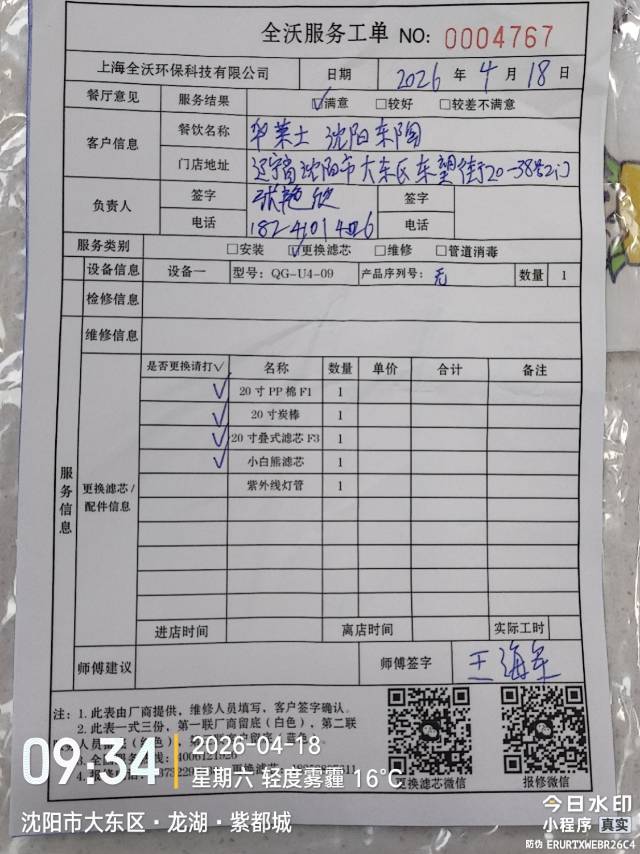 全沃服务工单 NO: 0004767
上海全沃环保科技有限公司 日期 2026 年 4 月 18 日
餐厅意见 服务结果 ☑满意 □较好 □较差不满意
客户信息 餐饮名称 华莱士 沈阳东陶
门店地址 辽宁省沈阳市大东区东望街20-38号2门
负责人 签字 签字
电话 电话
服务类别 □安装 ☑更换滤芯 □维修 □管道消毒
设备信息 设备一 型号: QG-U4-09 产品序列号: 无 数量 1
检修信息
维修信息
服务信息
更换滤芯/配件信息
是否更换请打√ 名称 数量 单价 合计 备注
√ 20寸PP棉F1 1
√ 20寸炭棒 1
√ 20寸叠式滤芯F3 1
√ 小白熊滤芯 1
紫外线灯管 1
进店时间 离店时间 实际工时
师傅建议 师傅签字 王海军
注: 1. 此表由厂商提供, 维修人员填写, 客户签字确认。
2. 此表一式三份, 第一联厂商留底(白色), 第二联
更换滤芯微信 报修微信
09:34
2026-04-18
星期六 轻度雾霾 16℃
沈阳市大东区·龙湖·紫都城
今日水印
小程序 真实
防伪 ERURTXWEBR26C4